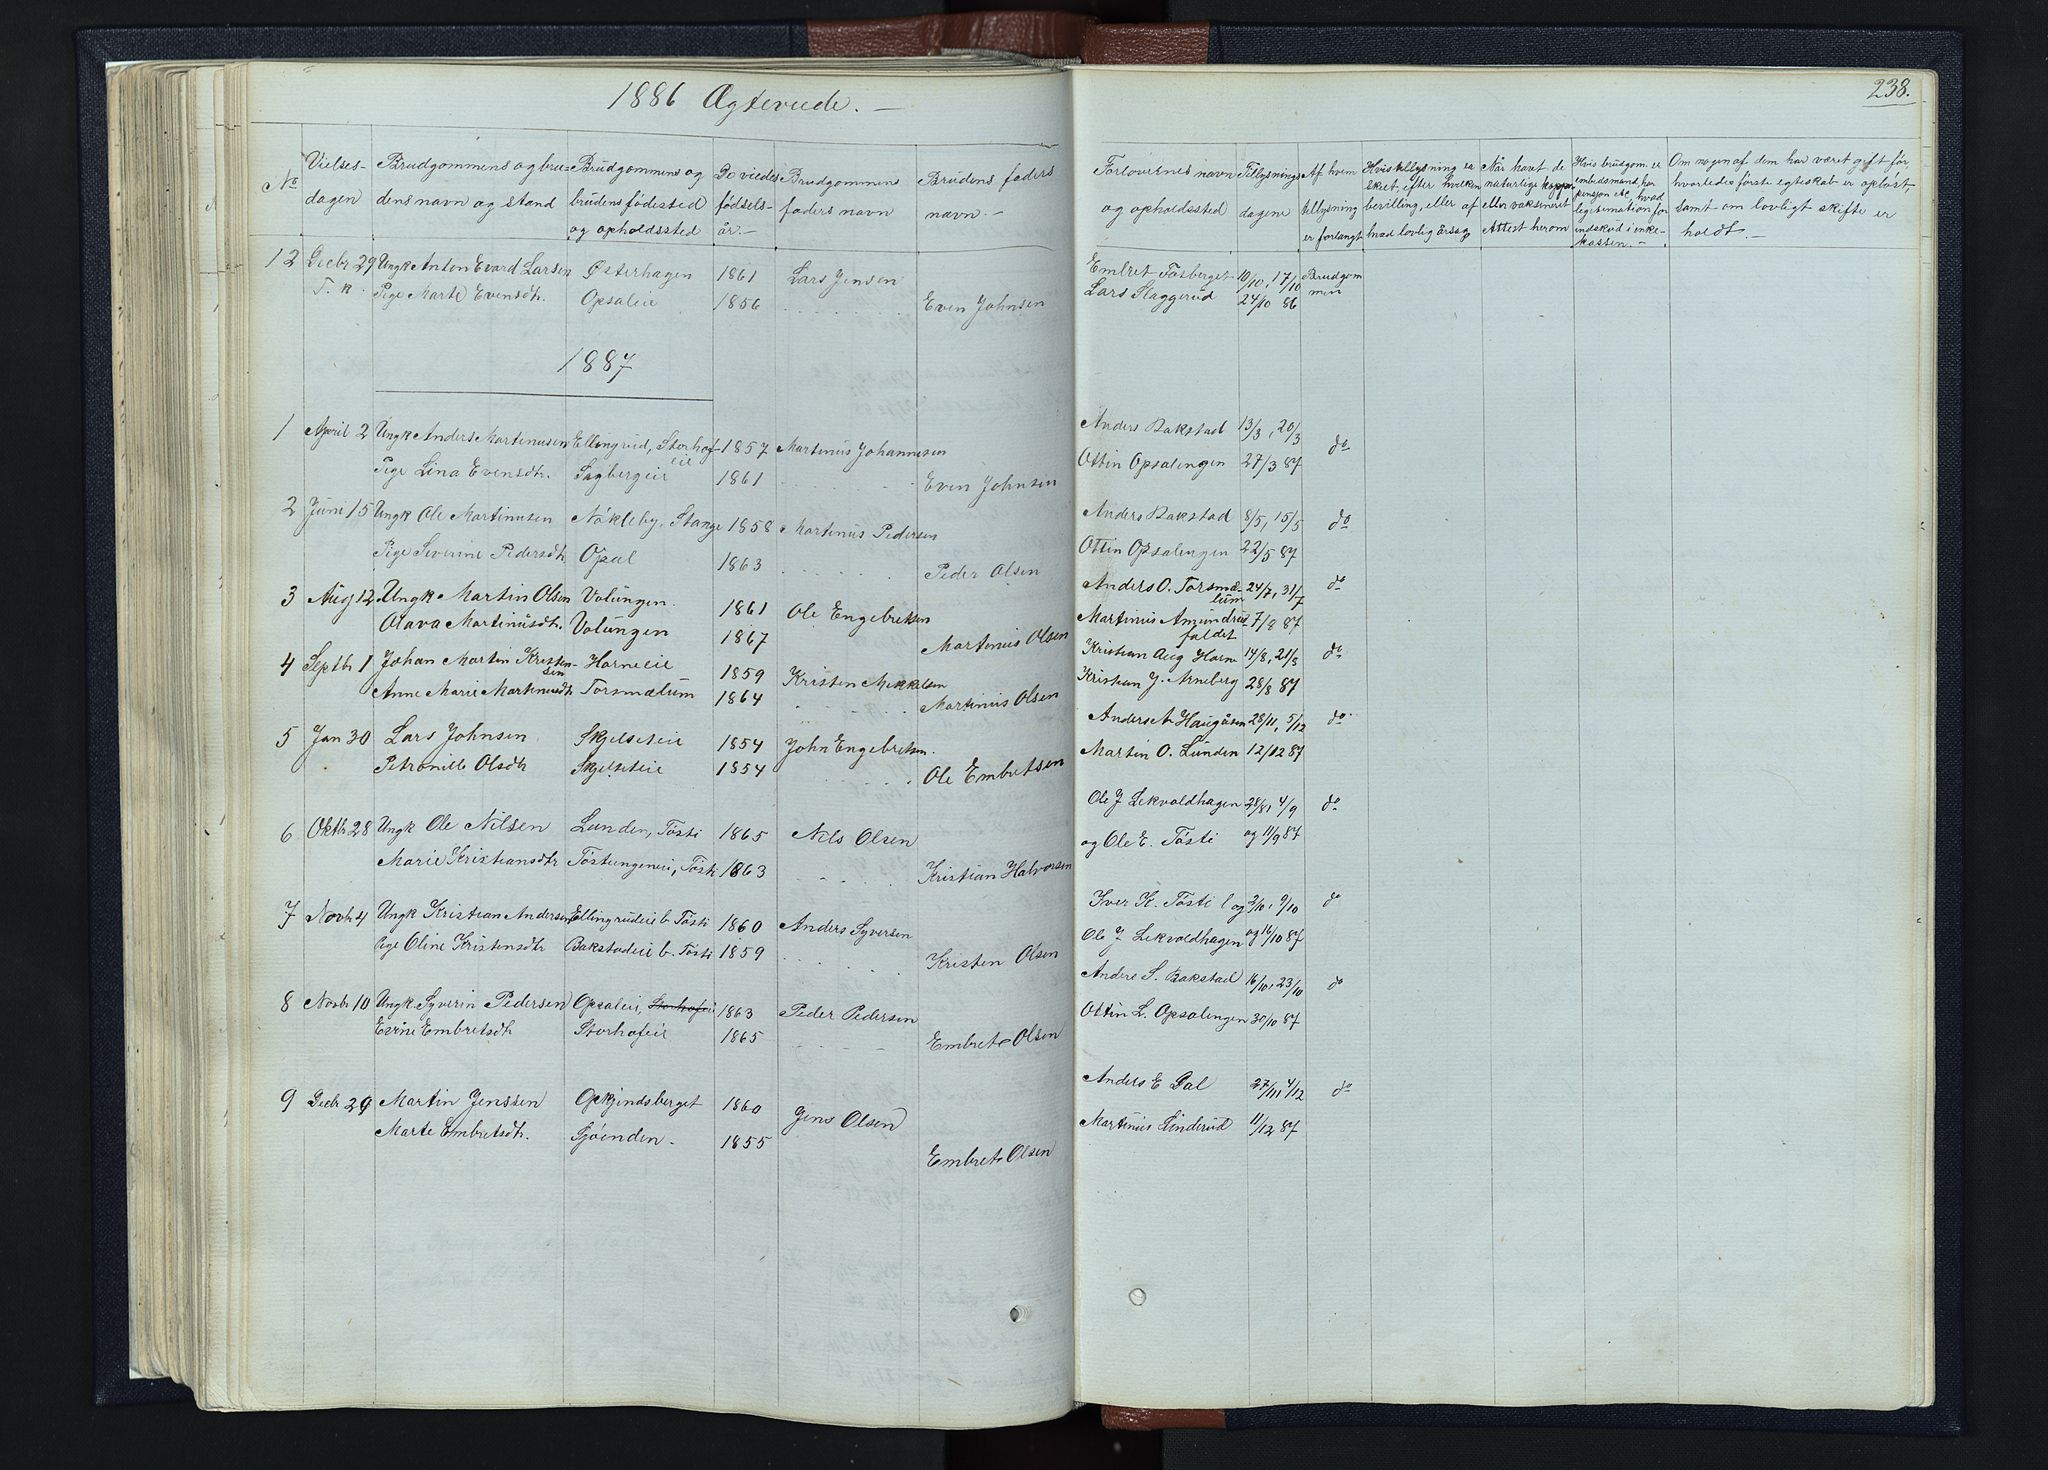 1886 Ægteviede. —
238.
No
Vielses-
dagen
Brudgommens og bru-
dens navn og stand
Brudgommens og
brudens födested
og opholdssted
De viedes
födsels-
år. —
Brudgommens
faders navn
Brudens faders
navn. —
Forlovernes navn
og opholdssted
Tillysnings
dagene
Af hvem
tillysning
er forlangt
Hvis tillysning er
sket, efter hvilken
bevilling, eller af
hvad lovlig Årsag
Når havt de
naturlige kopper
eller vaksineret
Attest herom
Hvis brudgom. er
embedsmand, har
pension &c, hvad
legitimation for
indskud i enke-
kassen. —
Om nogen af dem har været gift för
hvorledes förste egteskab er oplöst
samt om lovligt skifte er
holdt. —
12 Decbr 29 Ungk Anton Evard Larsen Österhagen 1861 Lars Jensen Embret Fosberget 10/10, 17/10 Brudgom
T. k. Pige Marte Evensdtr. Opsaleie 1856 Even Johnsen Lars Slaggerud 24/10 86 men
1887
1 April 2 Ungk Anders Martinusen Ellingrud, Storhof- 1857 Martinus Johannesen Anders Bakstad 13/3, 20/3 do
eie
Pige Lina Evensdtr. Sagbergeie 1861 Even Johnsen Ottin Opsalengen 27/3 87
2 Juni 15 Ungk Ole Martinusen Nökleby, Stange 1858 Martinus Pedersen Anders Bakstad 8/5, 15/5 do
Pige Siverine Pedersdtr Opsal 1863 Peder Olsen Ottin Opsalengen 22/5 87
3 Aug 12 Ungk Martin Olsen Volungen. 1861 Ole Engebretsen Anders O. Torsmæ- 24/7, 31/7 do
lum
Olava Martinusdtr. Volungen 1867 Martinus Olsen Martinus Amundrus- 7/8 87
faldet
4 Septbr 1 Johan Martin Kristen- Horneeie 1859 Kristen Mikkelsen Kristian Aug Horne 14/8, 21/8 do
sen
Anne Marie Martinusdtr Torsmælum 1864 Martinus Olsen Kristian J. Arneberg 28/8 87
5 Jan 30 Lars Johnsen Skjelseteie 1854 John Engebretsen. Anders A Haugåsen 28/11, 5/12 do
Petronille Olsdtr Skjelseteie 1854 Ole Embretsen Martin O. Lunden 12/12 87
6 Oktbr 28 Ungk Ole Nilsen Lunden, Tösti 1865 Nils Olsen Ole J Lekvoldhagen 28/8, 4/9 do
Marie Kristiansdtr Töstungeneie, Tösti 1863 Kristian Halvorsen og Ole E. Tösti og 11/9 87
7 Novbr 4 Ungk Kristian Andersen Ellingrudeie b. Tösti 1860 Anders Syversen Iver K. Tösti og 2/10, 9/10 do
Pige Oline Kristensdtr Bakstadeie b. Tösti 1859 Kristen Olsen Ole J Lekvoldhagen og 16/10 87
8 Novbr 10 Ungk Syverin Pedersen Opsaleie, Storhofeie 1863 Peder Pedersen Anders S. Bakstad 16/10, 23/10 do
Evine Embretsdtr Storhofeie 1865 Embret Olsen Ottin L. Opsalengen 30/10 87
9 Decbr 29 Martin Jenssen Opkjindsberget 1860 Jens Olsen Anders E Dal 27/11, 4/12 do
Marte Embretsdtr. Sjöenden - 1855 Embret Olsen Martinus Linderud 11/12 87